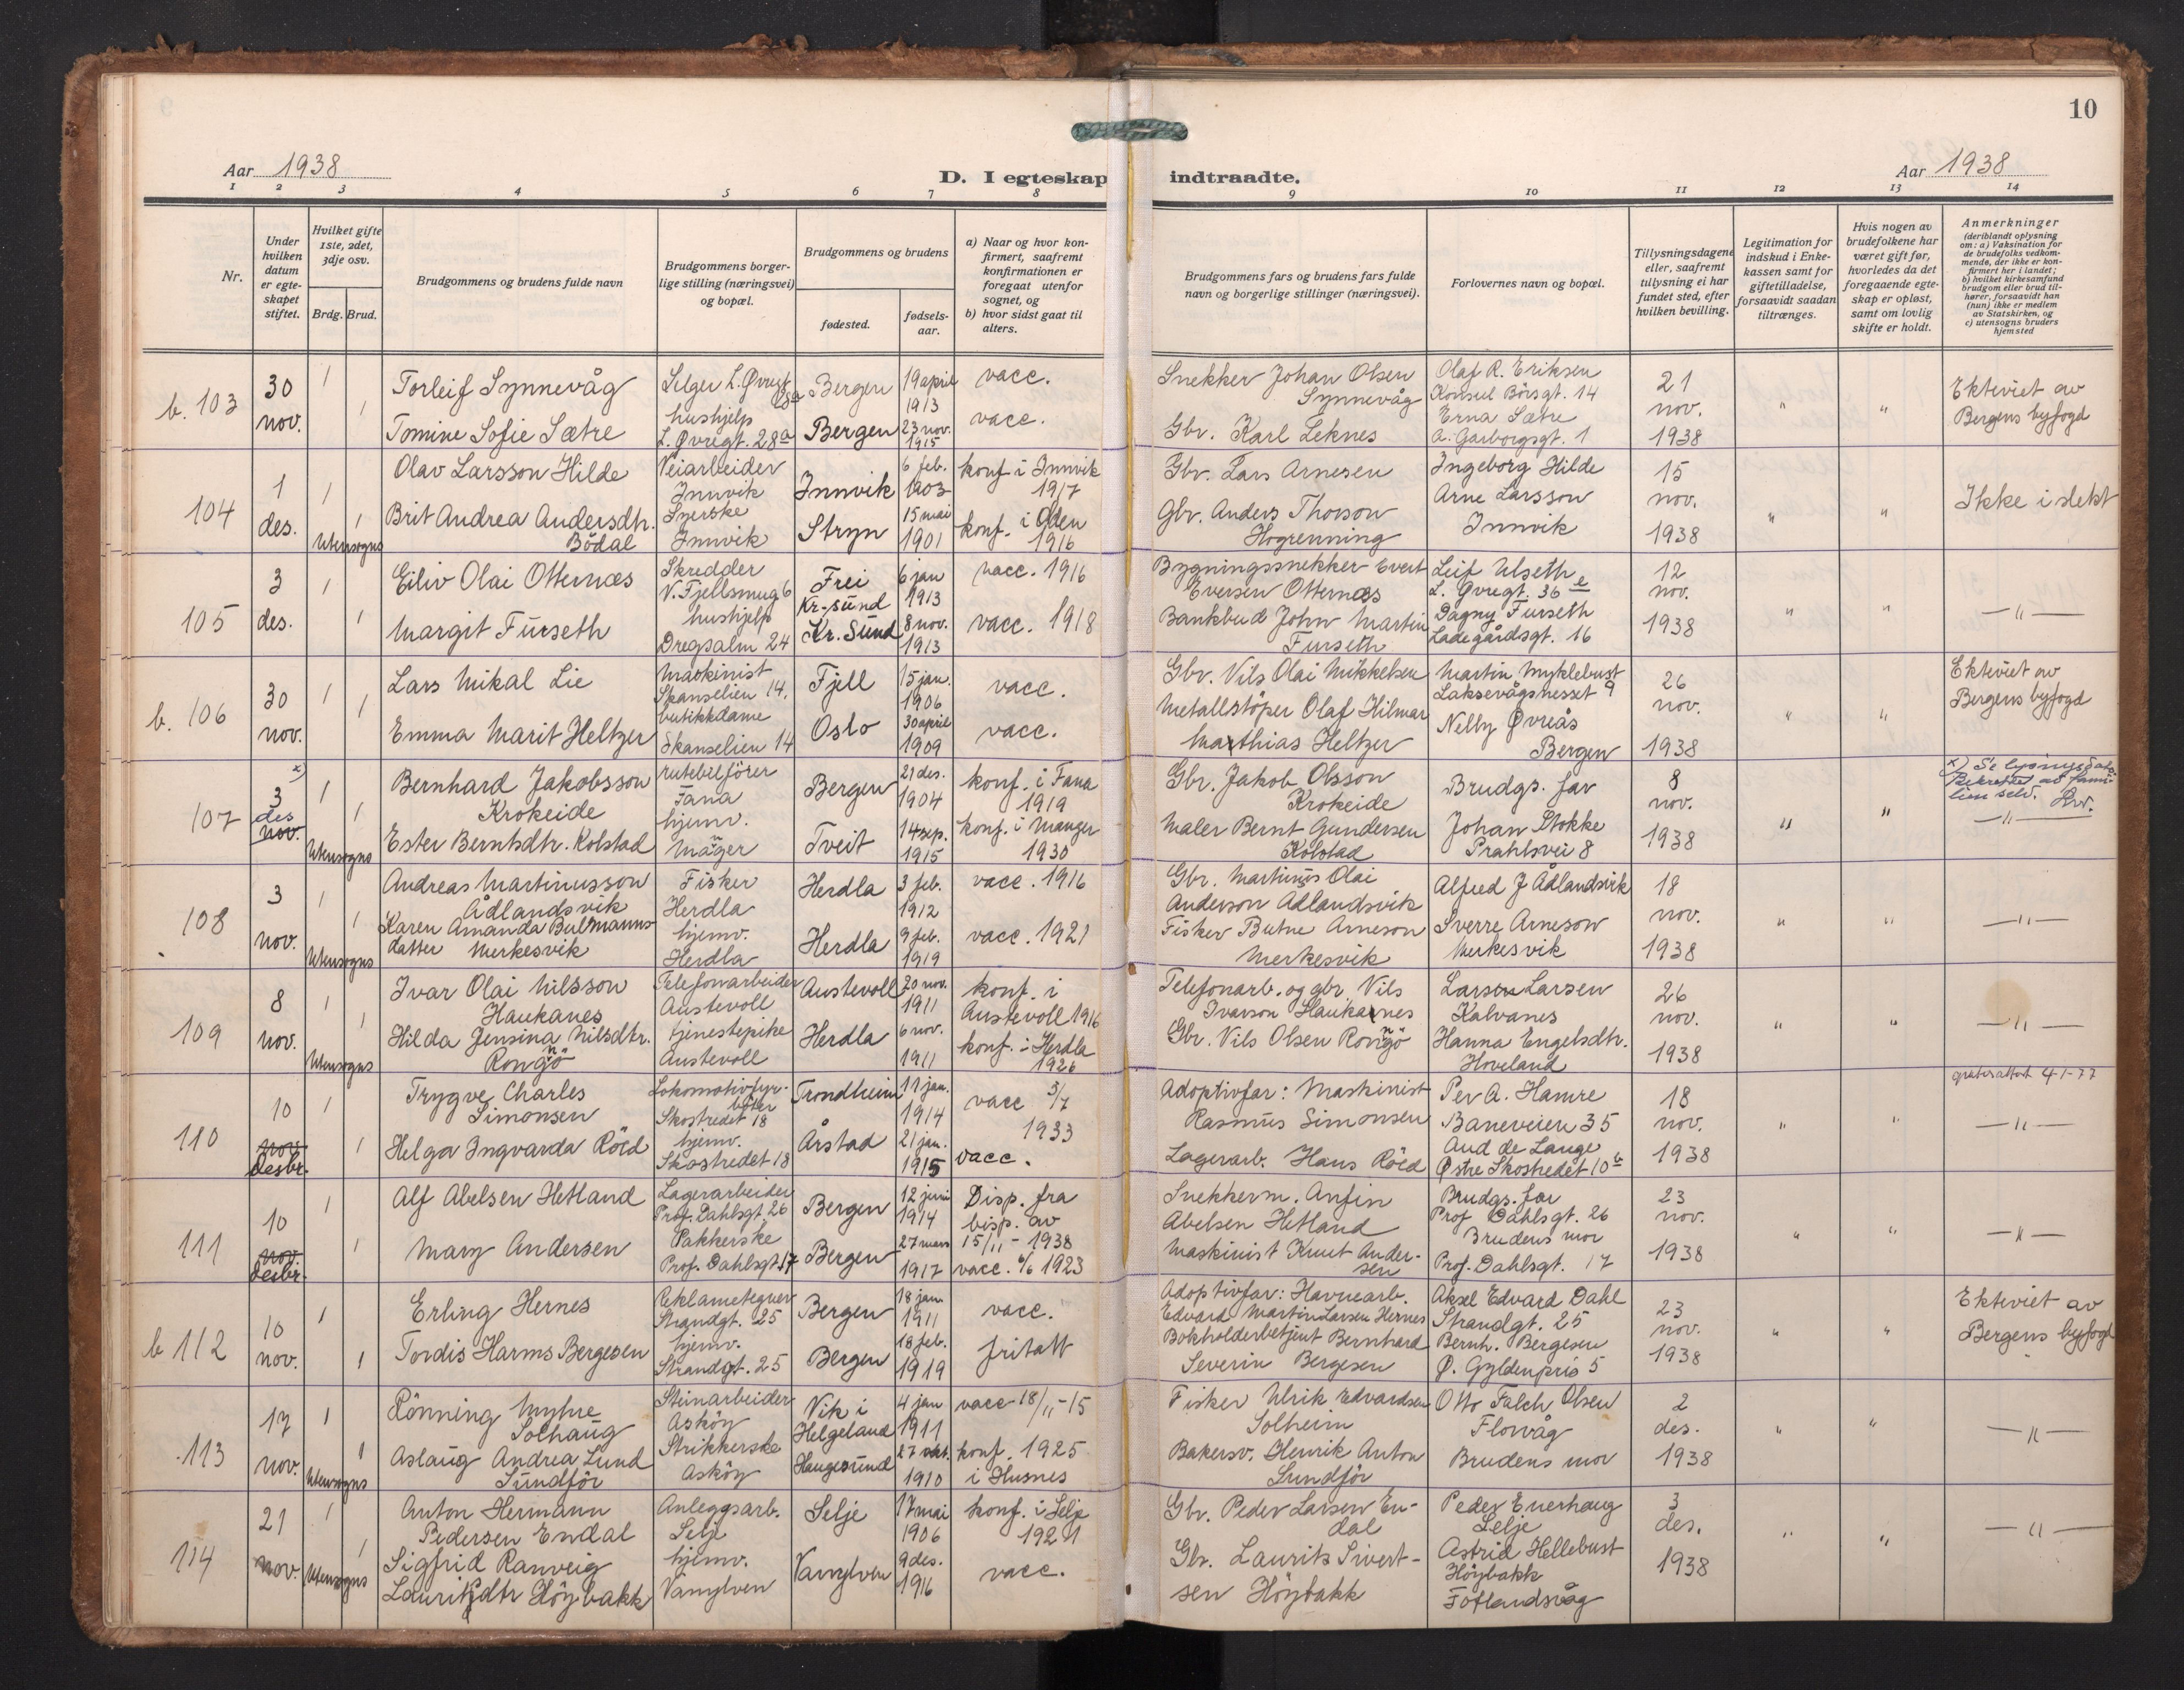 9
10
Aar 1938
D. I egteskap indtraadte.
Aar 1938
1 2 3 4 5 6 7 8 9 10 11 12 13 14
Nr.
Under hvilken datum er egte-skapet stiftet.
Hvilket gifte 1ste, 2det, 3dje osv.
Brdg. Brud.
Brudgommens og brudens fulde navn
Brudgommens borger-lige stilling (næringsvei) og bopæl.
Brudgommens og brudens
fødested.
fødsels-aar.
a) Naar og hvor kon-firmert, saafremt konfirmationen er foregaat utenfor sognet, og
b) hvor sidst gaat til alters.
Brudgommens fars og brudens fars fulde navn og borgerlige stillinger (næringsvei).
Forlovernes navn og bopæl.
Tillysningsdagene eller, saafremt tillysning ei har fundet sted, efter hvilken bevilling.
Legitimation for indskud i Enke-kassen samt for giftetilladelse, forsaavidt saadan tiltrænges.
Hvis nogen av brudefolkene har været gift før, hvorledes da det foregaaende egte-skap er opløst, samt om lovlig skifte er holdt.
Anmerkninger (deriblandt oplysning om: a) Vaksination for de brudefolks vedkom-mende, der ikke er kon-firmert her i landet; b) hvilket kirkesamfund brudgom eller brud til-hører, forsaavidt han (hun) ikke er medlem av Statskirken, og c) utensogns bruders hjemsted
b. 103 30 nov. 1 1
Torleif Synnevåg Selger L. Øvregt. 28a Bergen 19 april 1913 vacc.
Tomine Sofie Sætre hushjelp L. Øvregt. 28a Bergen 23 nov. 1915 vacc.
Snekker Johan Olsen Synnevåg
Gbr. Karl Leknes
Olaf R. Eriksen Konsul Börsgt. 14
Erna Sætre A. Garborgsgt. 1
21 nov. 1938 " "
Ekteviet av Bergens byfogd
104 1 des. 1 1 Utensogns
Olav Larsson Hilde Veiarbeider Innvik Innvik 6 feb. 1903 konf. i Innvik 1917
Brit Andrea Andersdtr. Bödal Syerske Innvik Stryn 15 mai 1901 konf. i Oden 1916
Gbr. Lars Arnesen
Gbr. Anders Thorson Hogrenning
Ingeborg Hilde
Arne Larsson Innvik
15 nov. 1938 " "
Ikke i slekt
105 3 des. 1 1
Eiliv Olai Otternæs Skredder V. Fjellsmug 6 Frei Kr-sund 6 jan 1913 vacc. 1916
Margit Furseth hushjelp Dregsalm 24 Kr. Sund 8 nov. 1913 vacc. 1918
Bygningssnekker Evert Eversen Otternæs
Bankbud John Martin Furseth
Leif Ulseth L. Øvregt. 36 e
Dagny Furseth Ladegårdsgt. 16
12 nov. 1938 " " — " —
b. 106 30 nov. 1 1
Lars Mikal Lie Maskinist Skanselien 14. Fjell 15 jan. 1906 vacc.
Emma Marit Heltzer butikkdame Skanselien 14 Oslo 30 april 1909 vacc.
Gbr. Nils Olai Mikkelsen
Metallstöper Olaf Hilmar Matthias Heltzer
Martin Myklebust Laksevågsnesset 9
Nelly Øvreås Bergen
26 nov. 1938 " "
Ekteviet av Bergens byfogd
107 x) 3 des nov. 1 1 Utensogns
Bernhard Jakobsson Krokeide rutebilförer Fana Bergen 21 des. 1904 konf. i Fana 1919
Ester Berntsdtr. Kolstad hjemv. Manger Tveit 14 sep. 1915 konf. i Manger 1930
Gbr. Jakob Olsson Krokeide
Maler Bernt Gundersen Kolstad
Brudgs. far
Johan Stokke Prahlsvei 8
8 nov. 1938 " "
x) Se lysningsdato. Bekreftet av fami-lien selv.
— " —
108 3 nov. 1 1 Utensogns
Andreas Martinusson Ådlandsvik Fisker Herdla Herdla 3 feb. 1912 vacc. 1916
Karen Amanda Butmanns-datter Merkesvik hjemv. Herdla Herdla 9 feb. 1919 vacc. 1921
Gbr. Martinus Olai Anderson Adlandsvik
Fisker Butne Arneson Merkesvik
Alfred J Ådlandsvik
Sverre Arneson Merkesvik
18 nov. 1938 " " — " —
109 8 nov. 1 1 Utensogns
Ivar Olai Nilsson Haukanes Telefonarbeider Austevoll Austevoll 20 nov. 1911 konf. i Austevoll 1916
Hilda Jensina Nilsdtr. Rongö tjenestepike Austevoll Herdla 6 nov. 1911 konf. i Herdla 1926
Telefonarb. og gbr. Nils Ivarson Haukanes
Gbr. Nils Olsen Rongö
Larsen Larsen Kalvanes
Hanna Engelsdtr. Hoveland
26 nov. 1938 " " — " —
110 10 nov desbr. 1 1
Trygve Charles Simonsen Lokomotivfyr-böter Skostredet 18 Trondheim 11 jan. 1914 vacc 3/7 1933
Helga Ingvarda Röed hjemv. Skostredet 18 Årstad 21 jan. 1915 vacc.
Adoptivfar: Maskinist Rasmus Simonsen
Lagerarb. Hans Röed
Per A. Hamre Baneveien 35
Aud de Lange Østre Skostredet 10 b
18 nov. 1938 " "
attest 4-1-77
— " —
111 10 nov desbr. 1 1
Alf Abelsen Hetland Lagerarbeider Prof. Dahlsgt 26 Bergen 12 juni 1914 Disp. fra bisp. av 15/11 - 1938
Mary Andersen Pakkerske Prof. Dahlsgt. 17 Bergen 27 mars 1917 vacc. 6/6 1923
Snekkerm. Anfin Abelsen Hetland
Maskinist Knut Ander-sen
Brudgs. far Prof Dahlsgt. 26
Brudens mor Prof. Dahlsgt. 17
23 nov. 1938 " " — " —
b 112 10 nov. 1 1
Erling Hernes Reklametegner Strandgt. 25 Bergen 18 jan 1911 vacc.
Tordis Harms Bergesen hjemv. Strandgt. 25 Bergen 18 feb. 1919 fritatt
Adoptivfar: Havnearb. Edvard Martin Larsen Hernes
Bokholderbetjent Bernhard Severin Bergesen
Aksel Edvard Dahl Strandgt. 25
Bernh. Bergesen Ø. Gyldenpris 5
23 nov. 1938 " "
Ekteviet av Bergens byfogd
113 17 nov. 1 1 Utensogns
Rönning Myhre Solhaug Steinarbeider Asköy Vik i Helgeland 4 jan 1911 vacc 18/11-15
Aslaug Andrea Lund Sundför Strikkerske Asköy Haugesund 27 1910 konf. 1925 i Husnes
Fisker Ulrik Edvardsen Solheim
Bakersv. Henrik Anton Sundför
Otto Falch Olsen Florvåg
Brudens mor
2 des. 1938 " " — " —
114 21 nov. 1 1 Utensogns
Anton Hermann Pedersen Endal Anleggsarb. Selje Selje 17 mai 1906 konf. i Selje 1921
Sigfrid Ranveig Lauritsdtr Höybakk hjemv. Vanylven Vanylven 9 des. 1916 vacc.
Gbr. Peder Larsen En-dal
Gbr. Laurits Sivert-sen Höybakk
Peder Enerhaug Selje
Astrid Hellebust Höybakk Fotlandsvåg
3 des. 1938 " " — " —